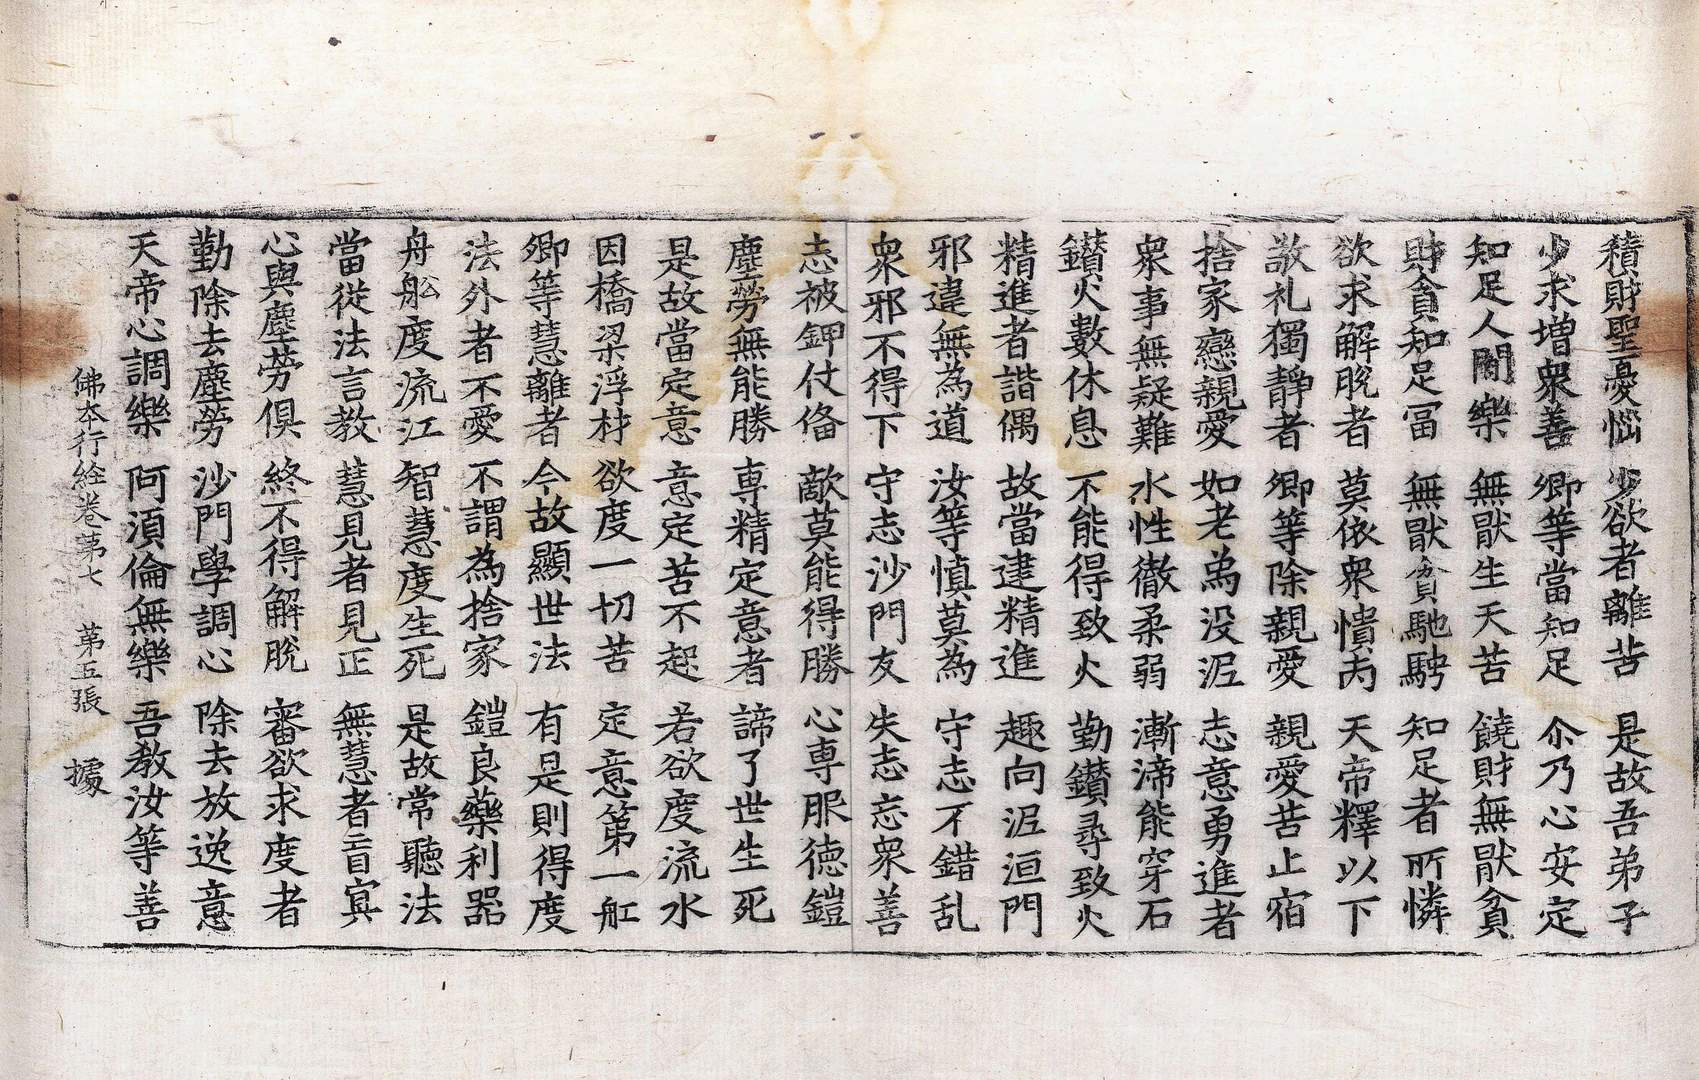 積財聖憂惱 少欲者離苦 是故吾弟子
少求增衆善 卿等當知足 尒乃心安定
知足人閒樂 無猒生天苦 饒財無猒貧
財貪知足冨 無猒貧馳騁 知足者所憐
欲求解脫者 莫依衆憒丙 天帝釋以下
敬礼獨靜者 卿等除親愛 親愛苦止宿
捨家戀親愛 如老為没泥 志意勇進者
衆事無疑難 水性徹柔弱 漸渧能穿石
鑚火數休息 不能得致火 勤鑚尋致火
精進者諧偶 故當建精進 趣向泥洹門
邪違無為道 汝等慎莫為 守志不錯乱
衆邪不得下 守志沙門友 失志忘衆善
志被鉀仗俻 敵莫能得勝 心専服德鎧
塵勞無能勝 専精定意者 諦了世生死
是故當定意 意定苦不起 若欲度流水
因橋梁浮材 欲度一切苦 定意第一舡
卿等慧離者 今故顯世法 有是則得度
法外者不愛 不謂為捨家 鎧良藥利器
舟舩度流江 智慧度生死 是故常聽法
當從法言教 慧見者見正 無慧者盲冥
心與塵勞俱 終不得解脫 審欲求度者
勤除去塵勞 沙門學調心 除去放逸意
天帝心調樂 阿湏倫無樂 吾教汝等善
佛本行經卷苐七 苐五張 據